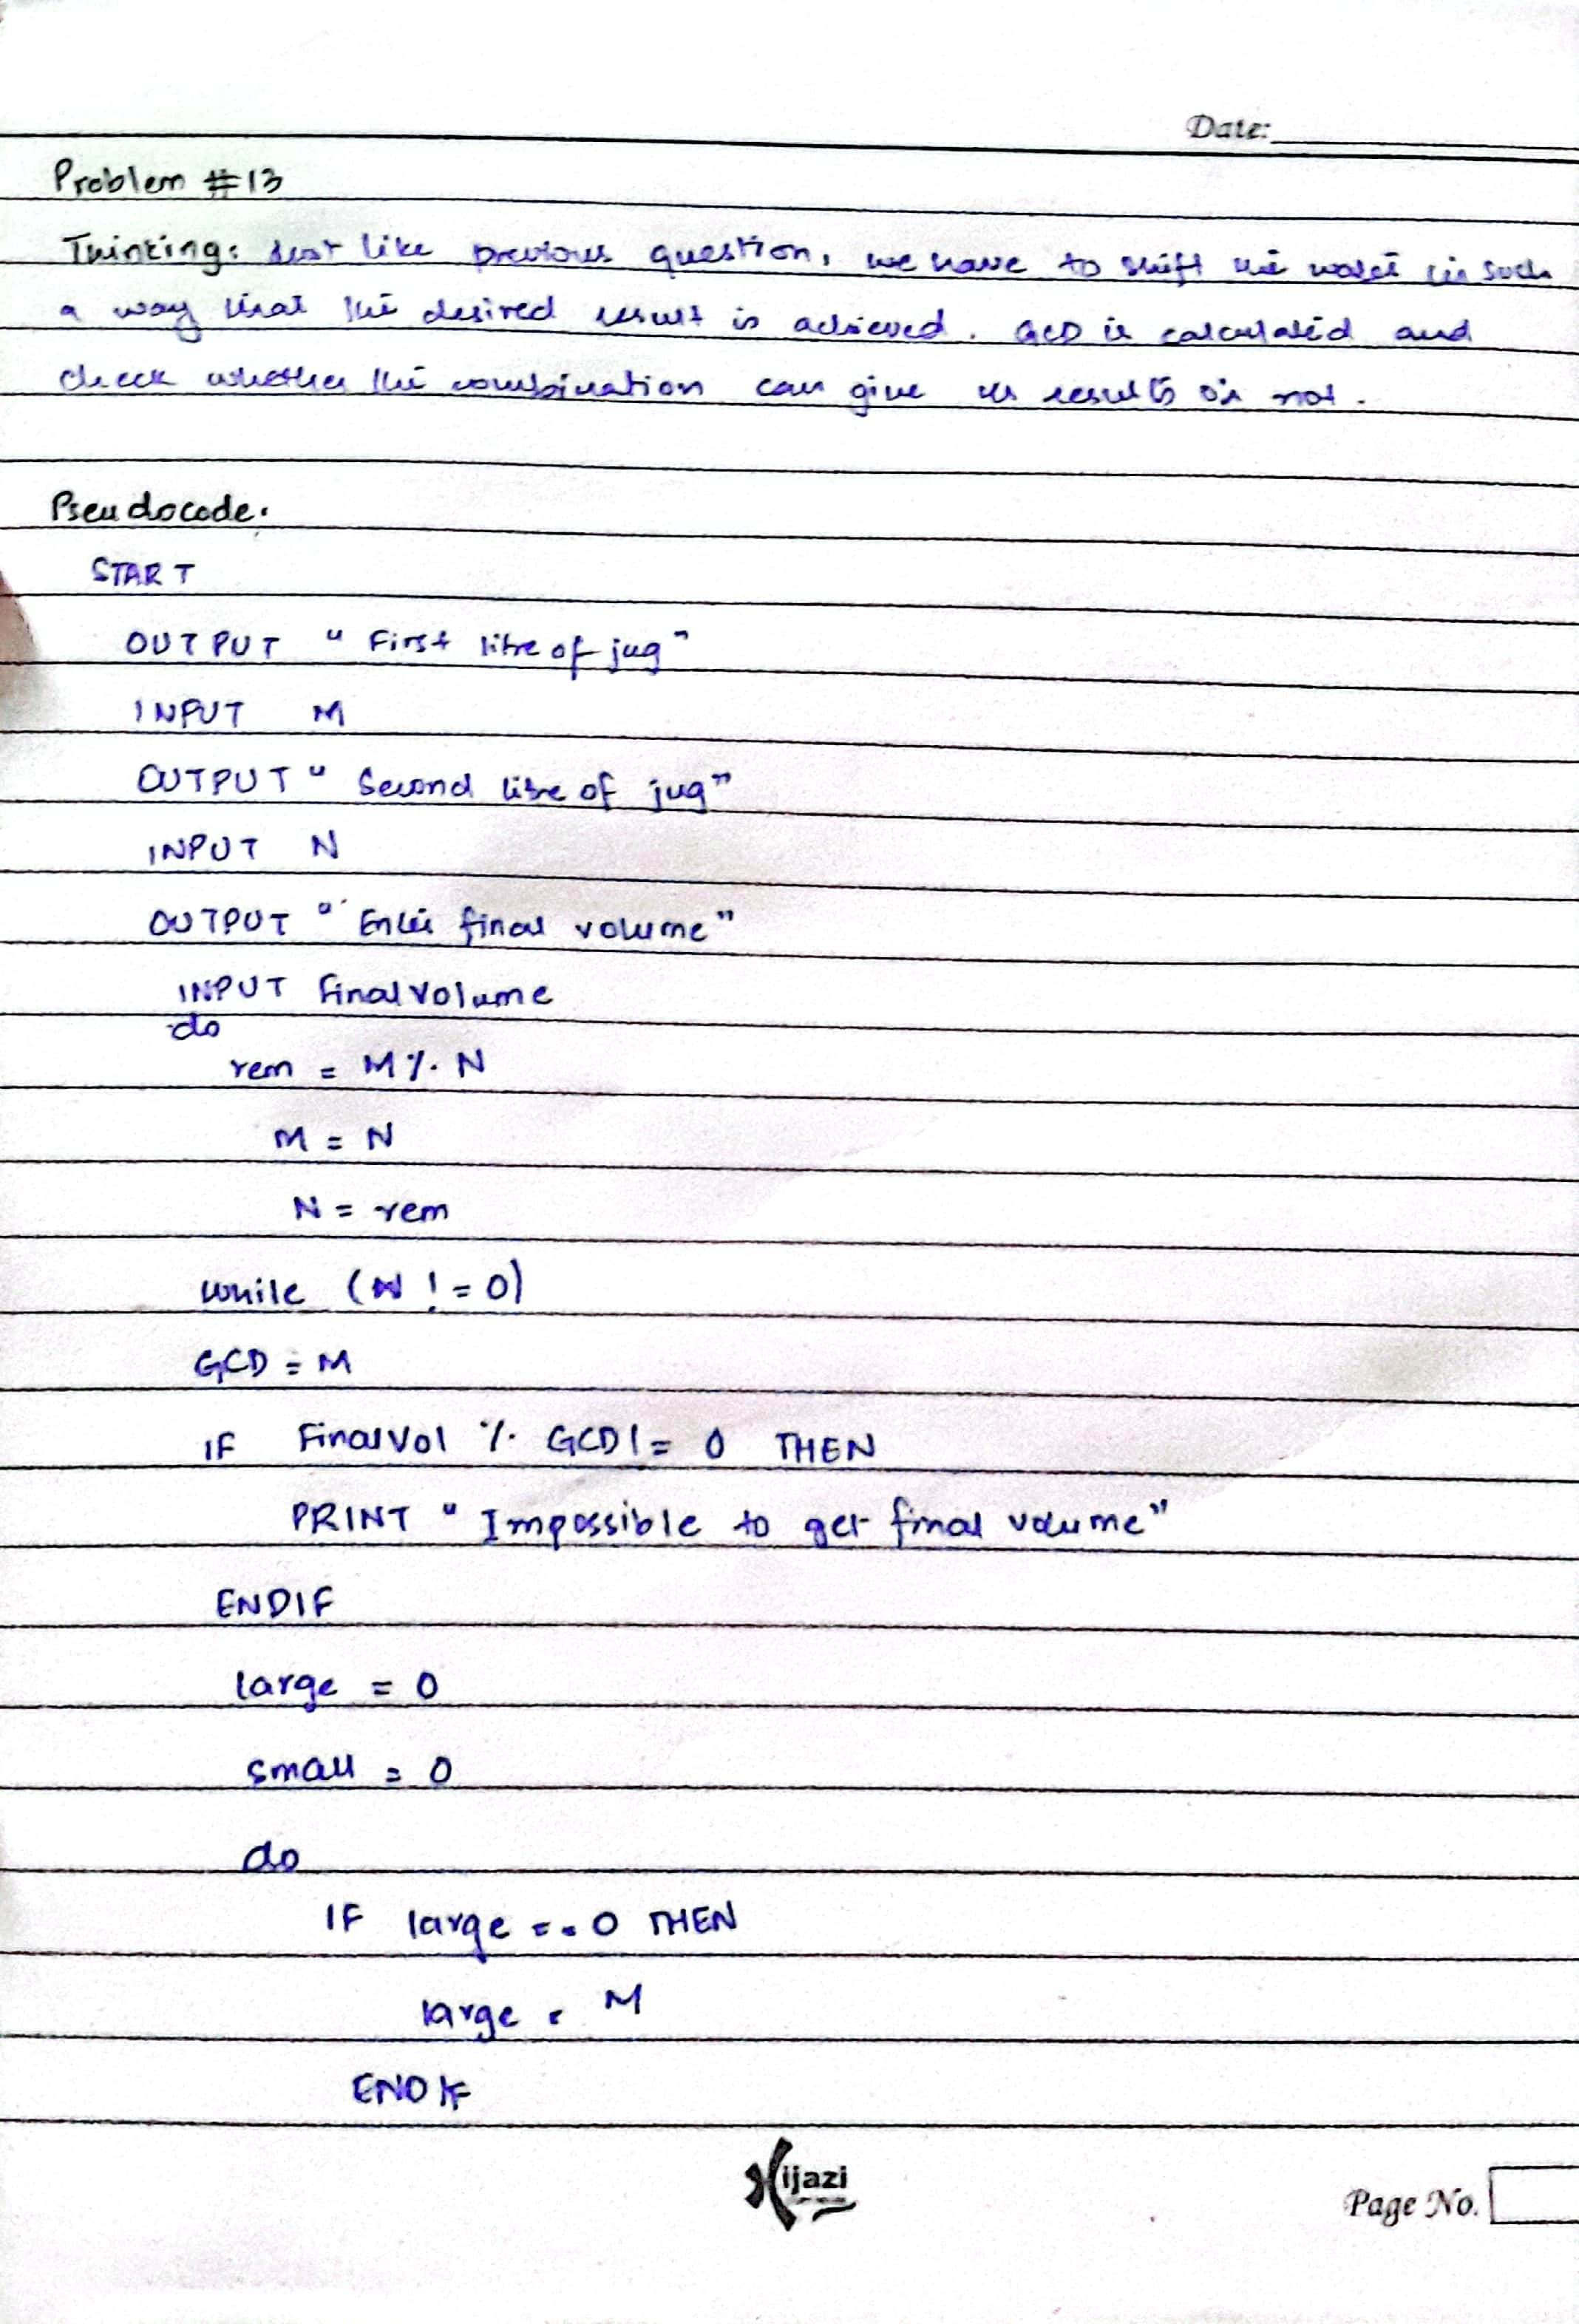 Date:
Problem #13
Thinking: Just like previous question, we have to shift the water in such
a way that the desired result is achieved. GCD is calculated and
check whether the combination can give us results or not.
Pseudocode.
START
OUTPUT " First litre of jug"
INPUT M
OUTPUT " Second litre of jug"
INPUT N
OUTPUT " Enter final volume"
INPUT finalvolume
do
rem = M % N
M = N
N = rem
while (N != 0)
GCD = M
IF Finalvol % GCD != 0 THEN
PRINT " Impossible to get final volume"
ENDIF
large = 0
small = 0
do
IF large == 0 THEN
large = M
ENDIF
Hijazi
Page No.